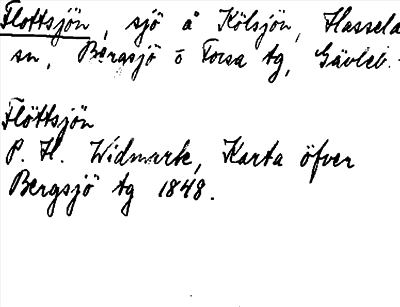 Flottsjön, sjö å Kölsjön, Hassela
sn, Bergsjö o Forsa tg, Gävleb.
Flöttsjön
P. H. Widmark, Karta öfver
Bergsjö tg 1848.